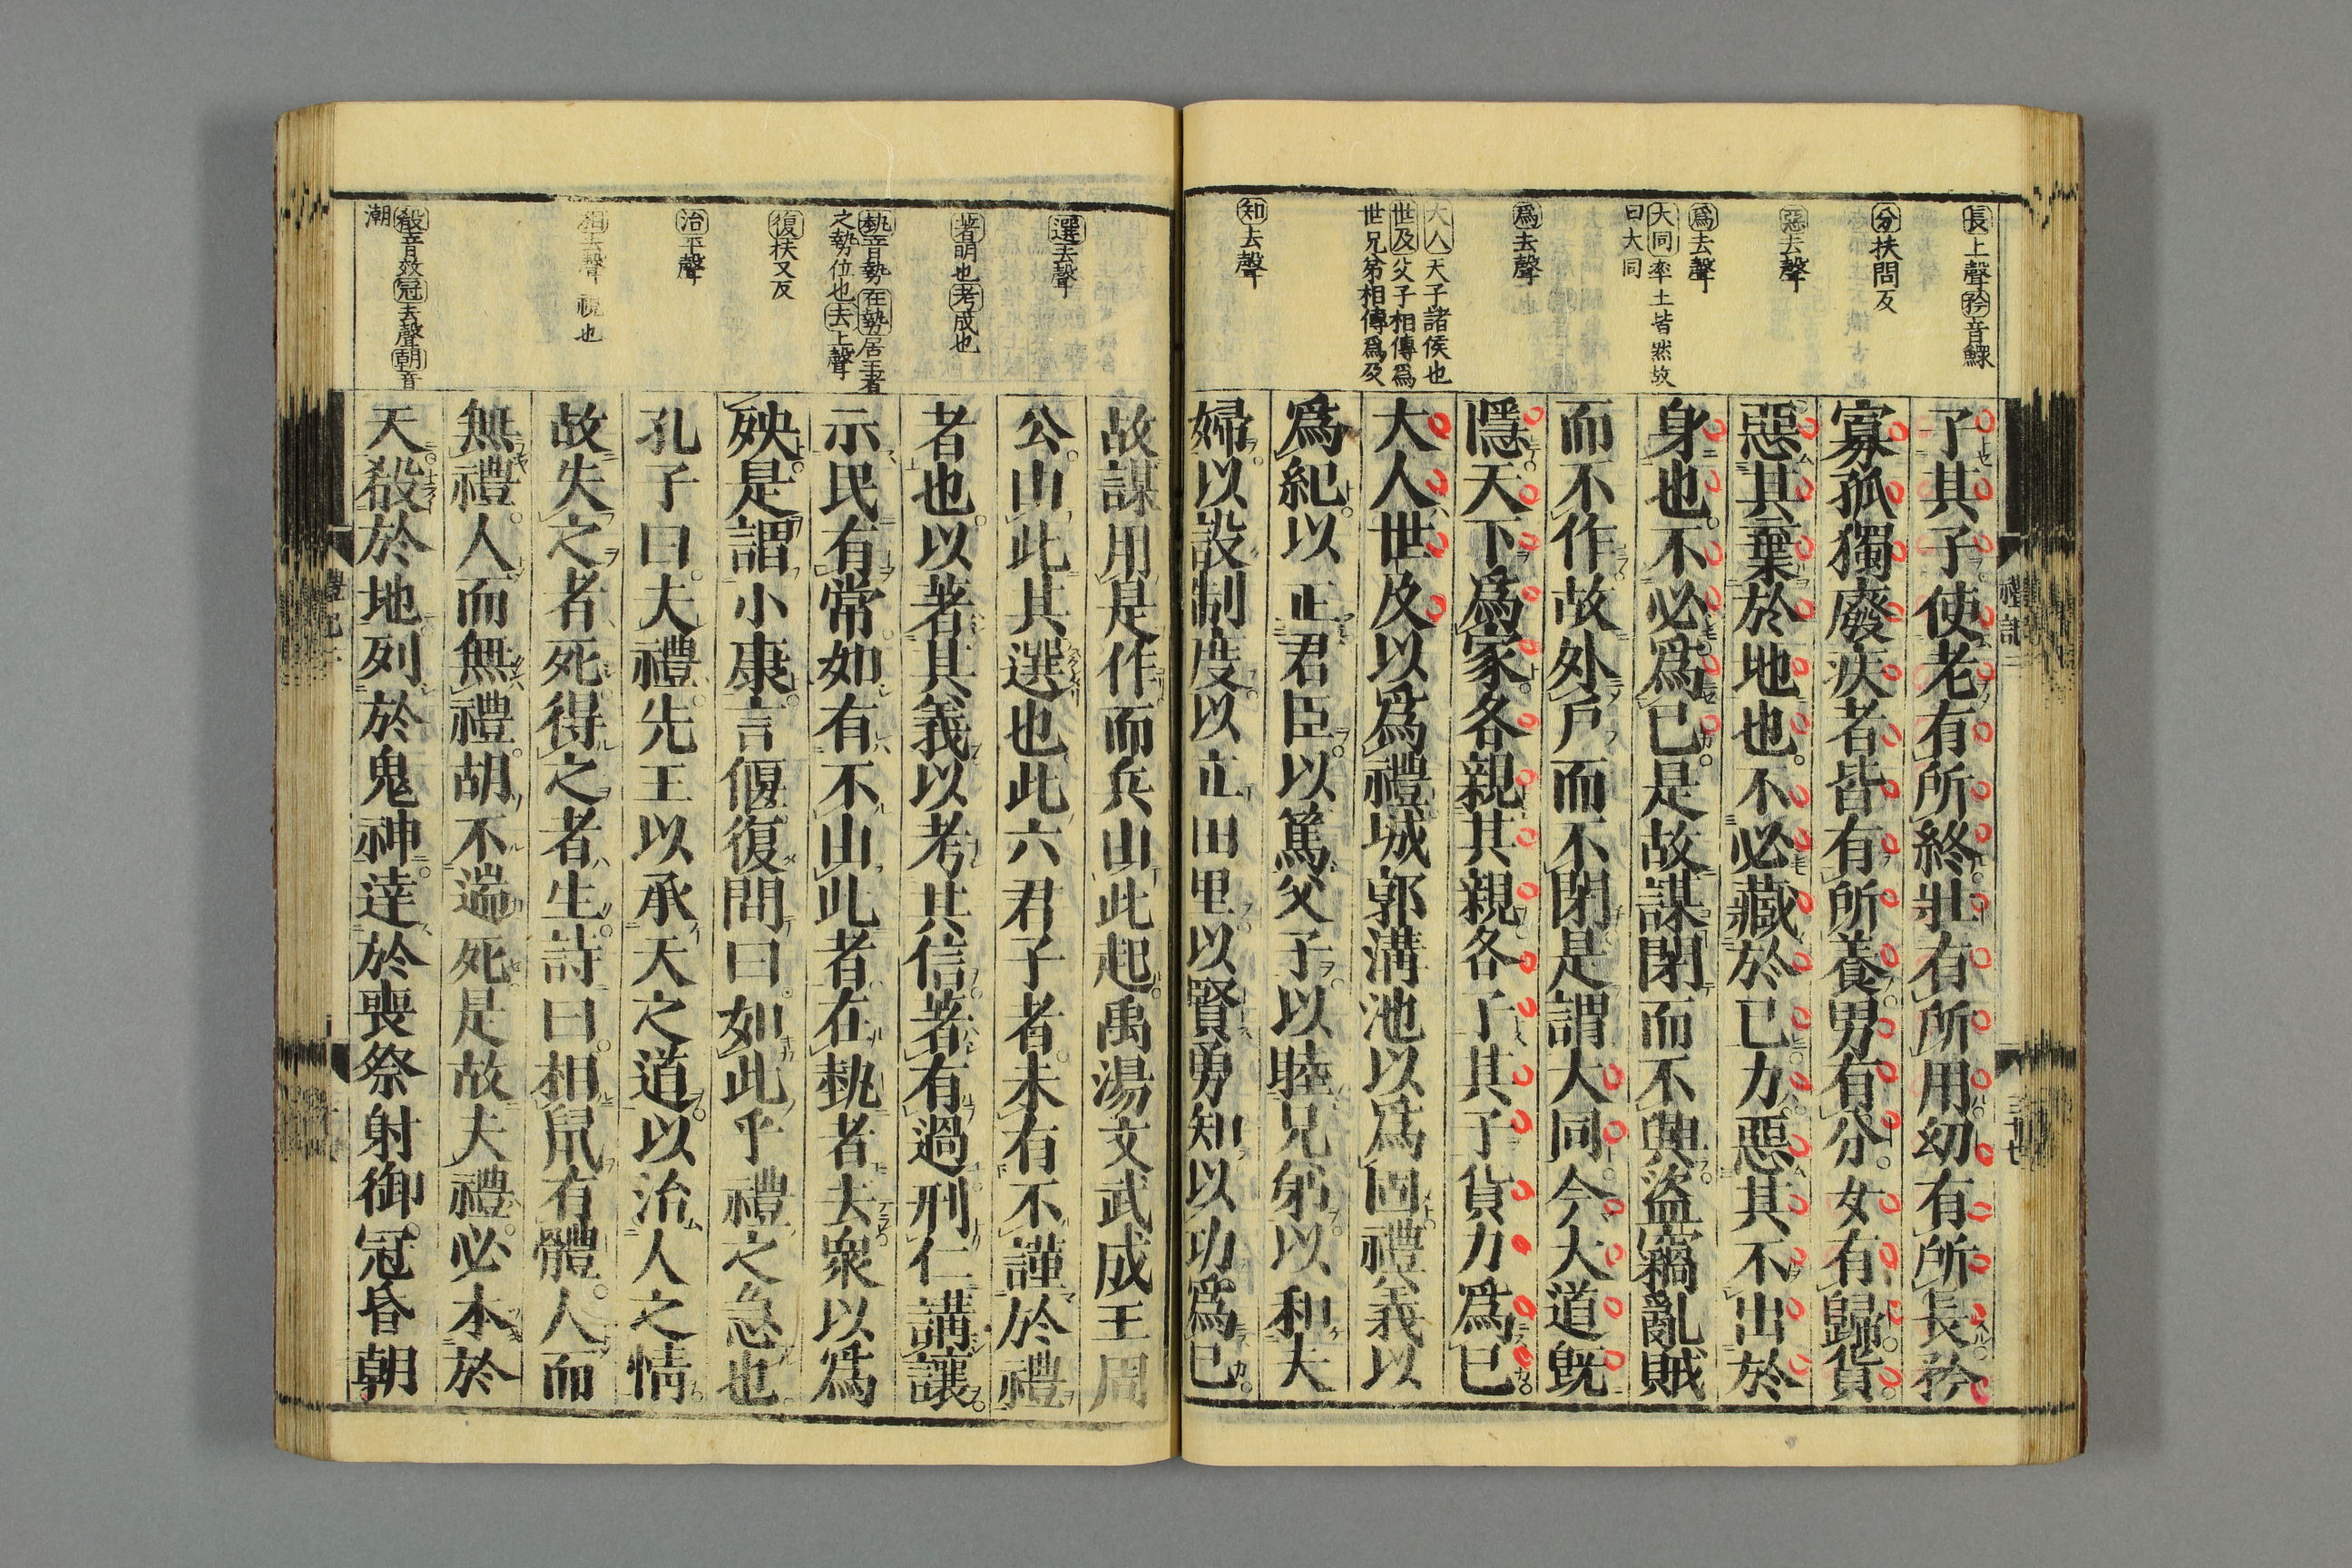 長上聲矜音鰥
分扶問反
惡去聲
爲去聲
大同率土皆然故
曰大同
爲去聲
大人天子諸侯也
世及父子相傳爲
世兄弟相傳爲及
知去聲
子其子使老有所終壯有所用幼有所長矜
寡孤獨廢疾者皆有所養男有分女有歸貨
惡其棄於地也不必藏於已力惡其不出於
身也不必爲已是故謀閉而不興盜竊亂賊
而不作故外戶而不閉是謂大同今大道旣
隱天下爲家各親其親各子其子貨力爲已
大人世及以爲禮城郭溝池以爲固禮義以
爲紀以正君臣以篤父子以睦兄弟以和夫
婦以設制度以立田里以賢勇知以功爲已
禮記二
選去聲
著明也考成也
埶音勢在埶居王者
之勢位也去上聲
復扶又反
治平聲
相去聲視也
殽音效冠去聲朝音
潮
故謀用是作而兵由此起禹湯文武成王周
公由此其選也此六君子者未有不謹於禮
者也以著其義以考其信著有過刑仁講讓
示民有常如有不由此者在埶者去衆以爲
殃是謂小康言偃復問曰如此乎禮之急也
孔子曰夫禮先王以承天之道以治人之情
故失之者死得之者生詩曰相鼠有體人而
無禮人而無禮胡不遄死是故夫禮必本於
天殽於地列於鬼神達於喪祭射御冠昏朝
禮記二